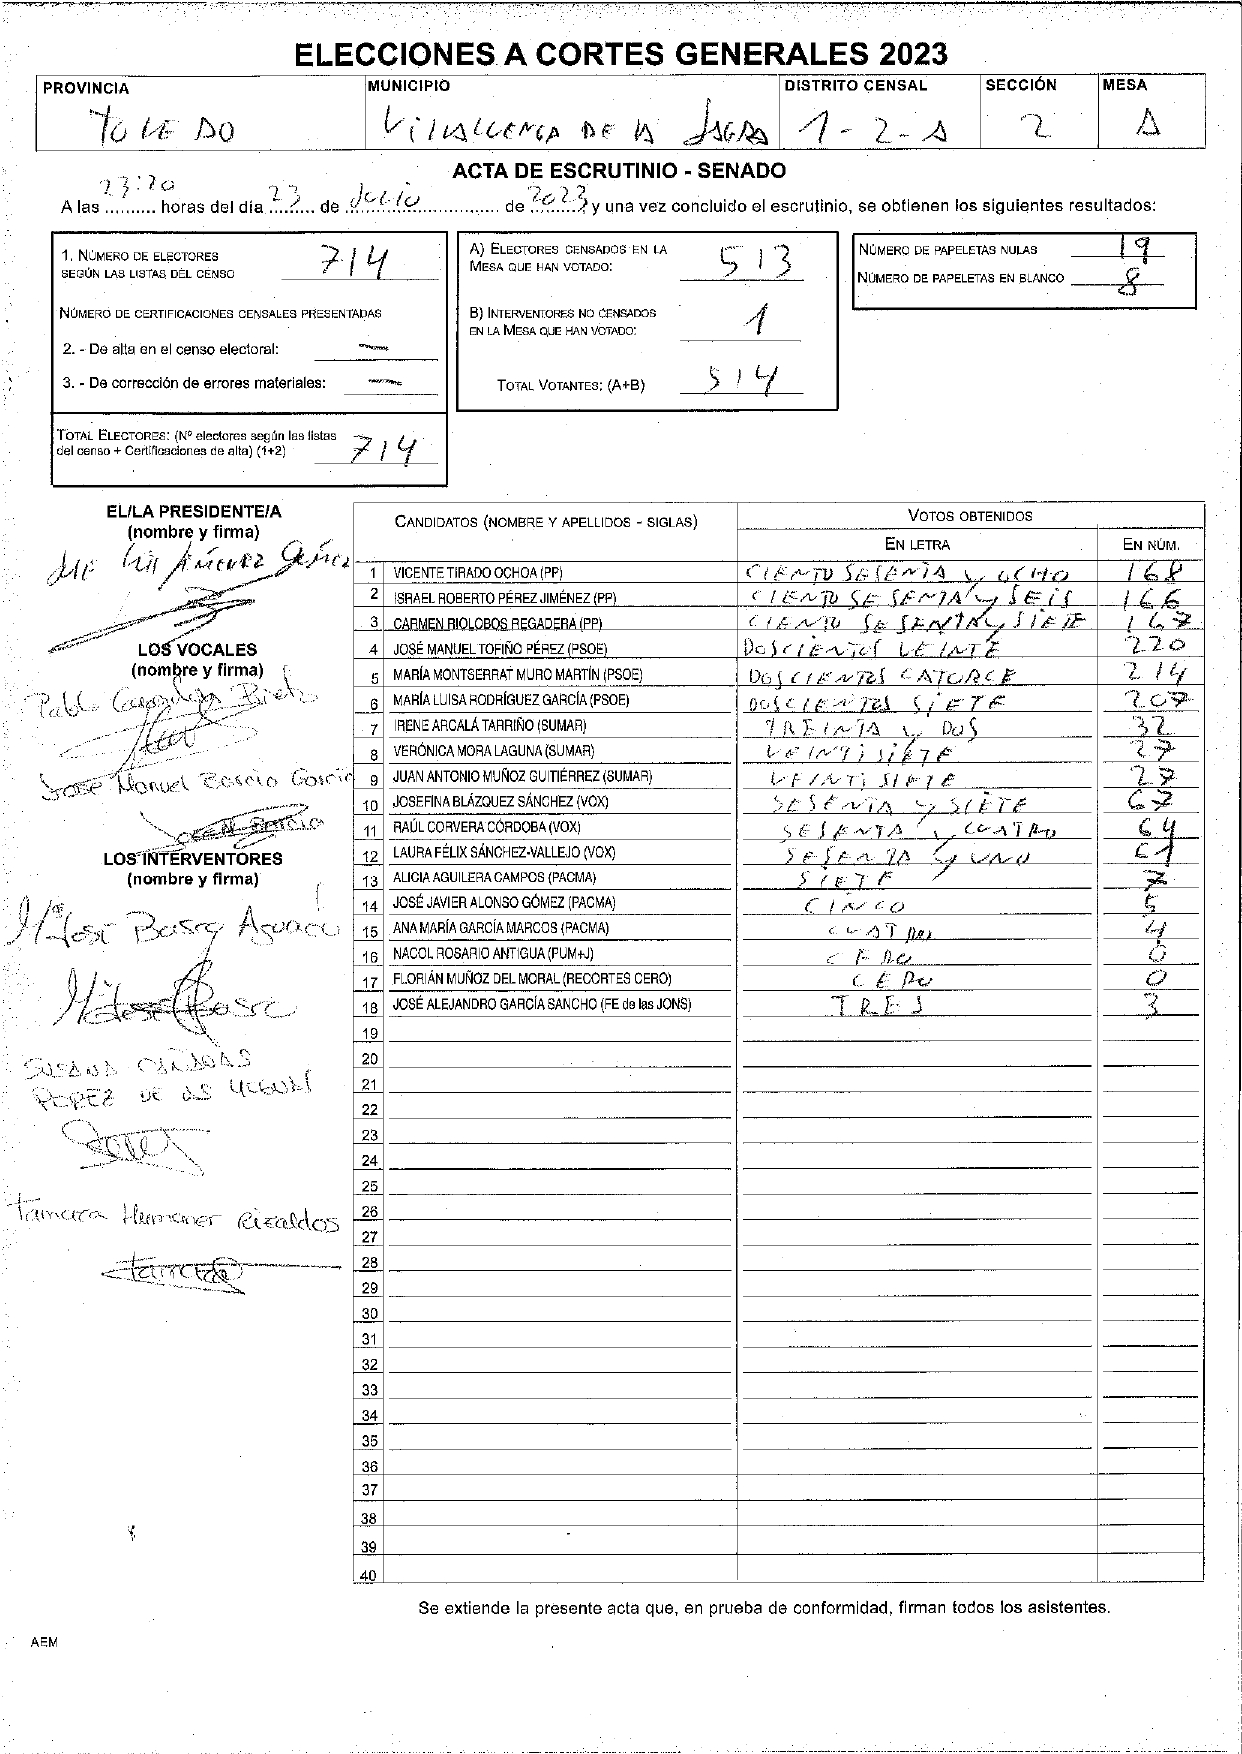 ELECCIONES A CORTES GENERALES 2023
PROVINCIA MUNICIPIO DISTRITO CENSAL SECCIÓN MESA
TOLEDO VILLALUENGA DE LA SAGRA 1-2-A 2 A
ACTA DE ESCRUTINIO - SENADO
A las 23:20 horas del día 23 de Julio de 2023 y una vez concluido el escrutinio, se obtienen los siguientes resultados:
1. NÚMERO DE ELECTORES
SEGÚN LAS LISTAS DEL CENSO 714
NÚMERO DE CERTIFICACIONES CENSALES PRESENTADAS
2. - De alta en el censo electoral: —
3. - De corrección de errores materiales: —
TOTAL ELECTORES: (Nº electores según las listas
del censo + Certificaciones de alta) (1+2) 714
A) ELECTORES CENSADOS EN LA
MESA QUE HAN VOTADO: 513
B) INTERVENTORES NO CENSADOS
EN LA MESA QUE HAN VOTADO: 1
TOTAL VOTANTES: (A+B) 514
NÚMERO DE PAPELETAS NULAS 19
NÚMERO DE PAPELETAS EN BLANCO 8
EL/LA PRESIDENTE/A
(nombre y firma)
LOS VOCALES
(nombre y firma)
Pablo
Jose Manuel García
LOS INTERVENTORES
(nombre y firma)
Mª José
SUSANA
Tamara Rizaldos
CANDIDATOS (NOMBRE Y APELLIDOS - SIGLAS) VOTOS OBTENIDOS
EN LETRA EN NÚM.
1 VICENTE TIRADO OCHOA (PP) CIENTO SESENTA y OCHO 168
2 ISRAEL ROBERTO PÉREZ JIMÉNEZ (PP) CIENTO SESENTA y SEIS 166
3 CARMEN RIOLOBOS REGADERA (PP) CIENTO SESENTA y SIETE 167
4 JOSÉ MANUEL TOFIÑO PÉREZ (PSOE) DOSCIENTOS VEINTE 220
5 MARÍA MONTSERRAT MURO MARTÍN (PSOE) DOSCIENTOS CATORCE 214
6 MARÍA LUISA RODRÍGUEZ GARCÍA (PSOE) DOSCIENTOS SIETE 207
7 IRENE ARCALÁ TARRIÑO (SUMAR) TREINTA y DOS 32
8 VERÓNICA MORA LAGUNA (SUMAR) VEINTISIETE 27
9 JUAN ANTONIO MUÑOZ GUITIÉRREZ (SUMAR) VEINTISIETE 27
10 JOSEFINA BLÁZQUEZ SÁNCHEZ (VOX) SESENTA y SIETE 67
11 RAÚL CORVERA CÓRDOBA (VOX) SESENTA y CUATRO 64
12 LAURA FÉLIX SÁNCHEZ-VALLEJO (VOX) SESENTA y UNO 61
13 ALICIA AGUILERA CAMPOS (PACMA) SIETE 7
14 JOSÉ JAVIER ALONSO GÓMEZ (PACMA) CINCO 5
15 ANA MARÍA GARCÍA MARCOS (PACMA) CUATRO 4
16 NACOL ROSARIO ANTIGUA (PUM+J) CERO 0
17 FLORIÁN MUÑOZ DEL MORAL (RECORTES CERO) CERO 0
18 JOSÉ ALEJANDRO GARCÍA SANCHO (FE de las JONS) TRES 3
19
20
21
22
23
24
25
26
27
28
29
30
31
32
33
34
35
36
37
38
39
40
Se extiende la presente acta que, en prueba de conformidad, firman todos los asistentes.
AEM